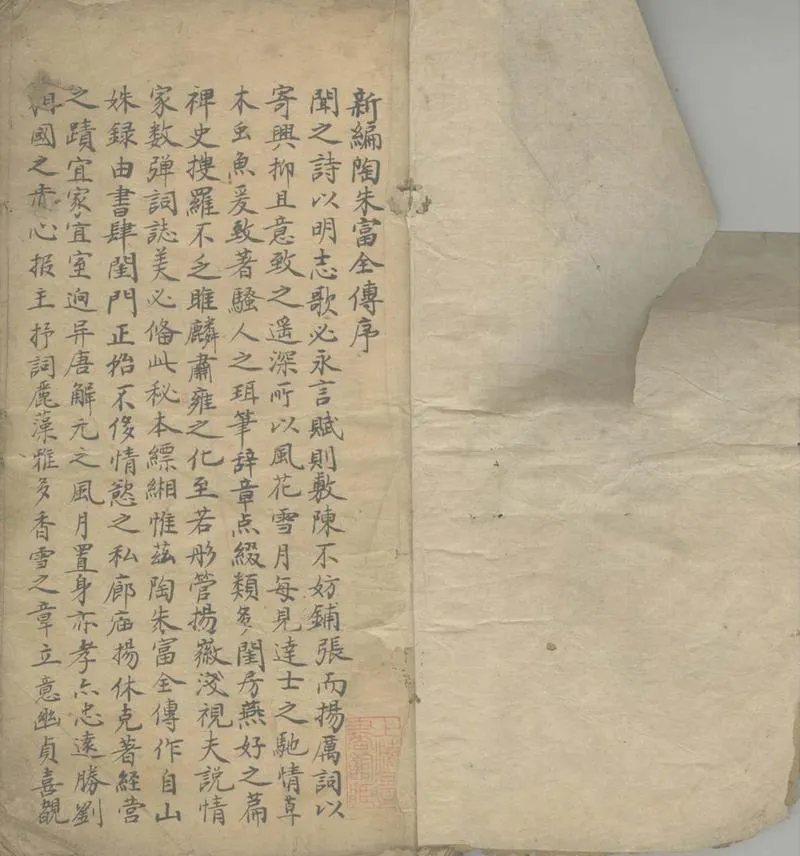 新編陶朱富全傳序
聞之詩以明志歌必永言賦則敷陳不妨鋪張而揚厲詞以
寄興抑且意致之遥深所以風花雪月每見達士之馳情草
木虫魚爰致著騷人之珥筆辞章点綴類多閨房燕好之篇
稗史搜羅不乏雎麟肅雍之化至若彤管揚徽淺視夫説情
家数弹詞誌美必俻此秘本縹緗惟茲陶朱富全傳作自山
姝録由書肆閨門正始不侈情慾之私廊庙揚休克著經营
之蹟宜家宜室逈异唐解元之風月置身亦孝亦忠遠勝劉
國之赤心报主抒詞麗藻雅多香雪之章立意幽貞喜觀